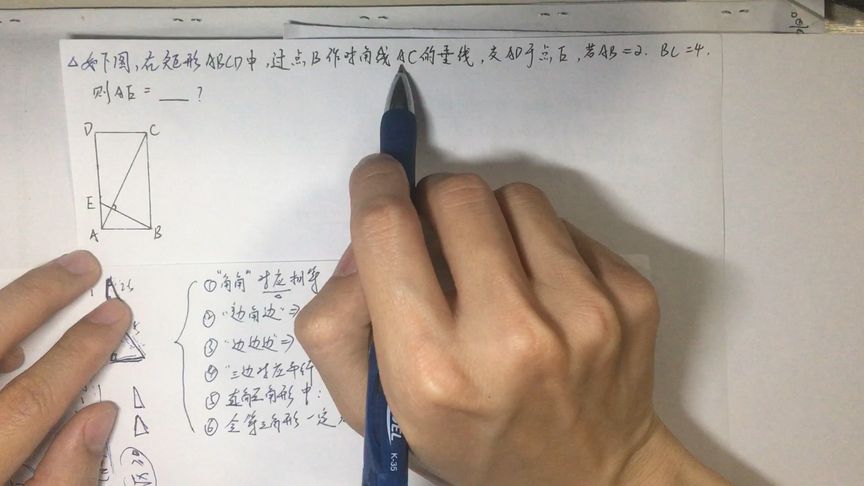 △如下图,在矩形ABCD中,过点B作对角线AC的垂线,交AD于点E,若AB=2.BC=4.
则AE=___?
D C
E
A B
①"角角"对应相等
②"边角边"⇒
③"边边边"⇒
④"三边对应平行
⑤直角三角形中:
⑥全等三角形一定
K-35